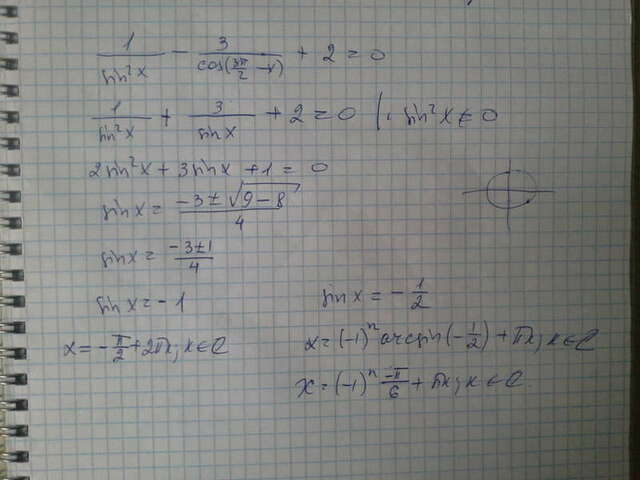 1/sin²x − 3/cos(3π/2 − x) + 2 = 0
1/sin²x + 3/sinx + 2 = 0 | · sin²x ≠ 0
2sin²x + 3sinx + 1 = 0
sinx = (−3 ± √(9 − 8))/4
sinx = (−3 ± 1)/4
sinx = −1
sinx = −1/2
x = −π/2 + 2πk; k ∈ Z
x = (−1)ⁿ arcsin(−1/2) + πk; k ∈ Z
x = (−1)ⁿ −π/6 + πk; k ∈ Z